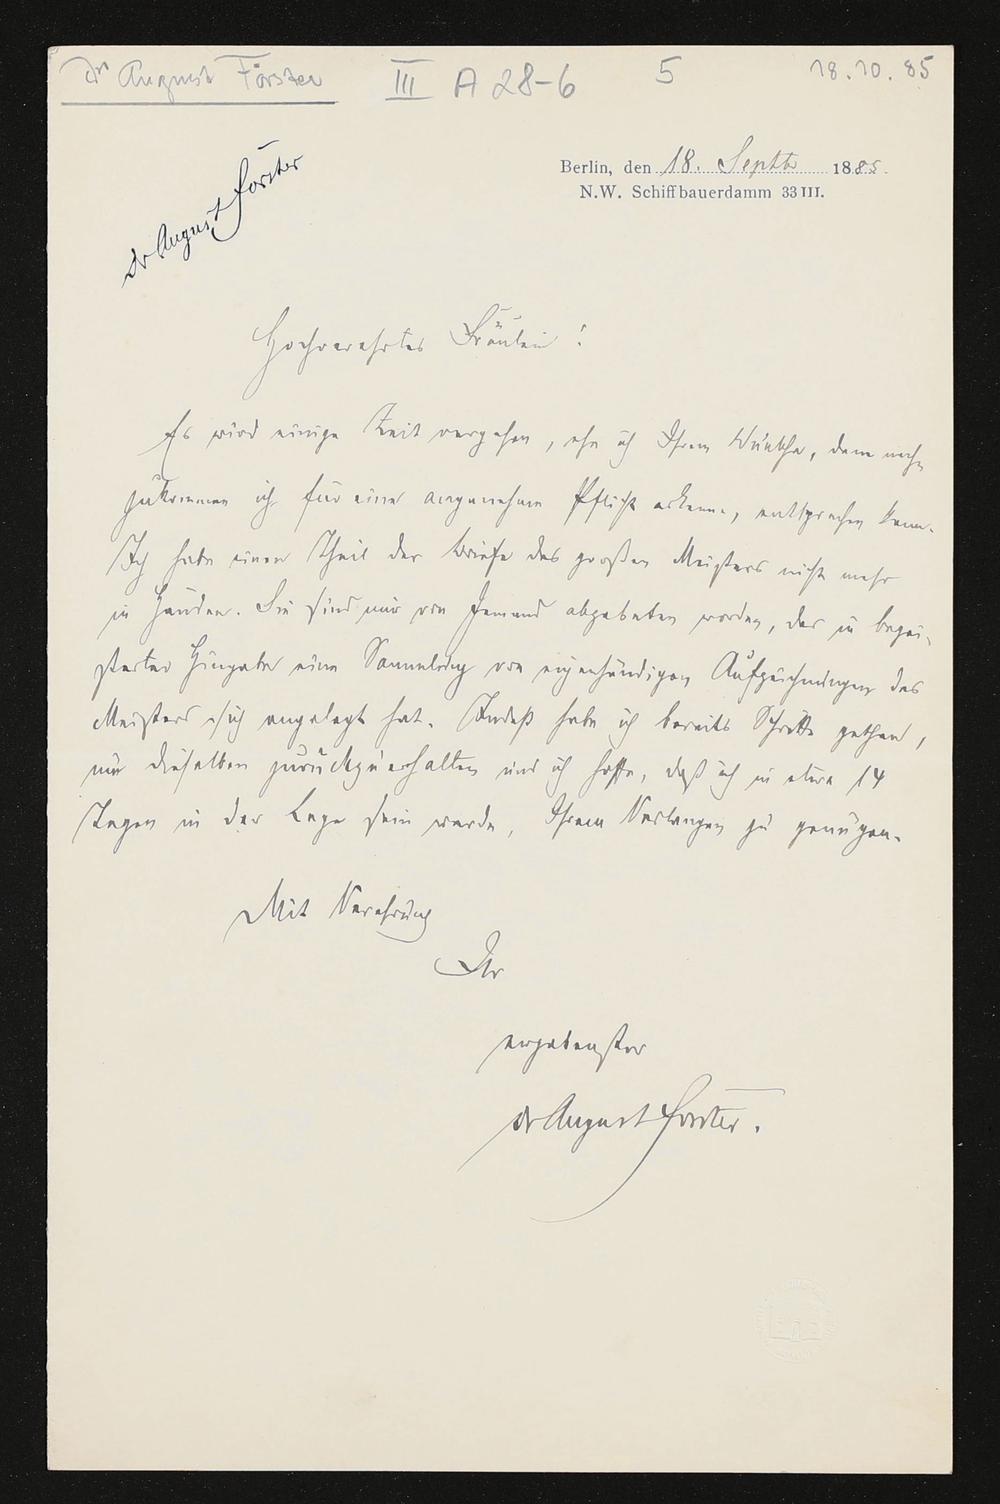 Dr August Förster III A 28-6 5 18.10.85
Dr August Förster
Berlin, den 18. Septb 1885.
N.W. Schiffbauerdamm 33 III.
Hochverehrtes Fräulein!
Es wird einige Zeit vergehen, ehe ich Ihrem Wunsche, dem nach-
zukommen ich für eine angenehme Pflicht erkenne, entsprechen kann.
Ich habe einen Theil der Briefe des großen Meisters nicht mehr
in Händen. Sie sind mir von Jemand abgebeten worden, der in begei-
sterter Hingabe eine Sammlung von eigenhändigen Aufzeichnungen des
Meisters sich angelegt hat. Indeß habe ich bereits Schritte gethan,
um dieselben zurückzuerhalten und ich hoffe, daß ich in etwa 14
Tagen in der Lage sein werde, Ihrem Verlangen zu genügen.
Mit Verehrung
Ihr
ergebenster
Dr August Förster.